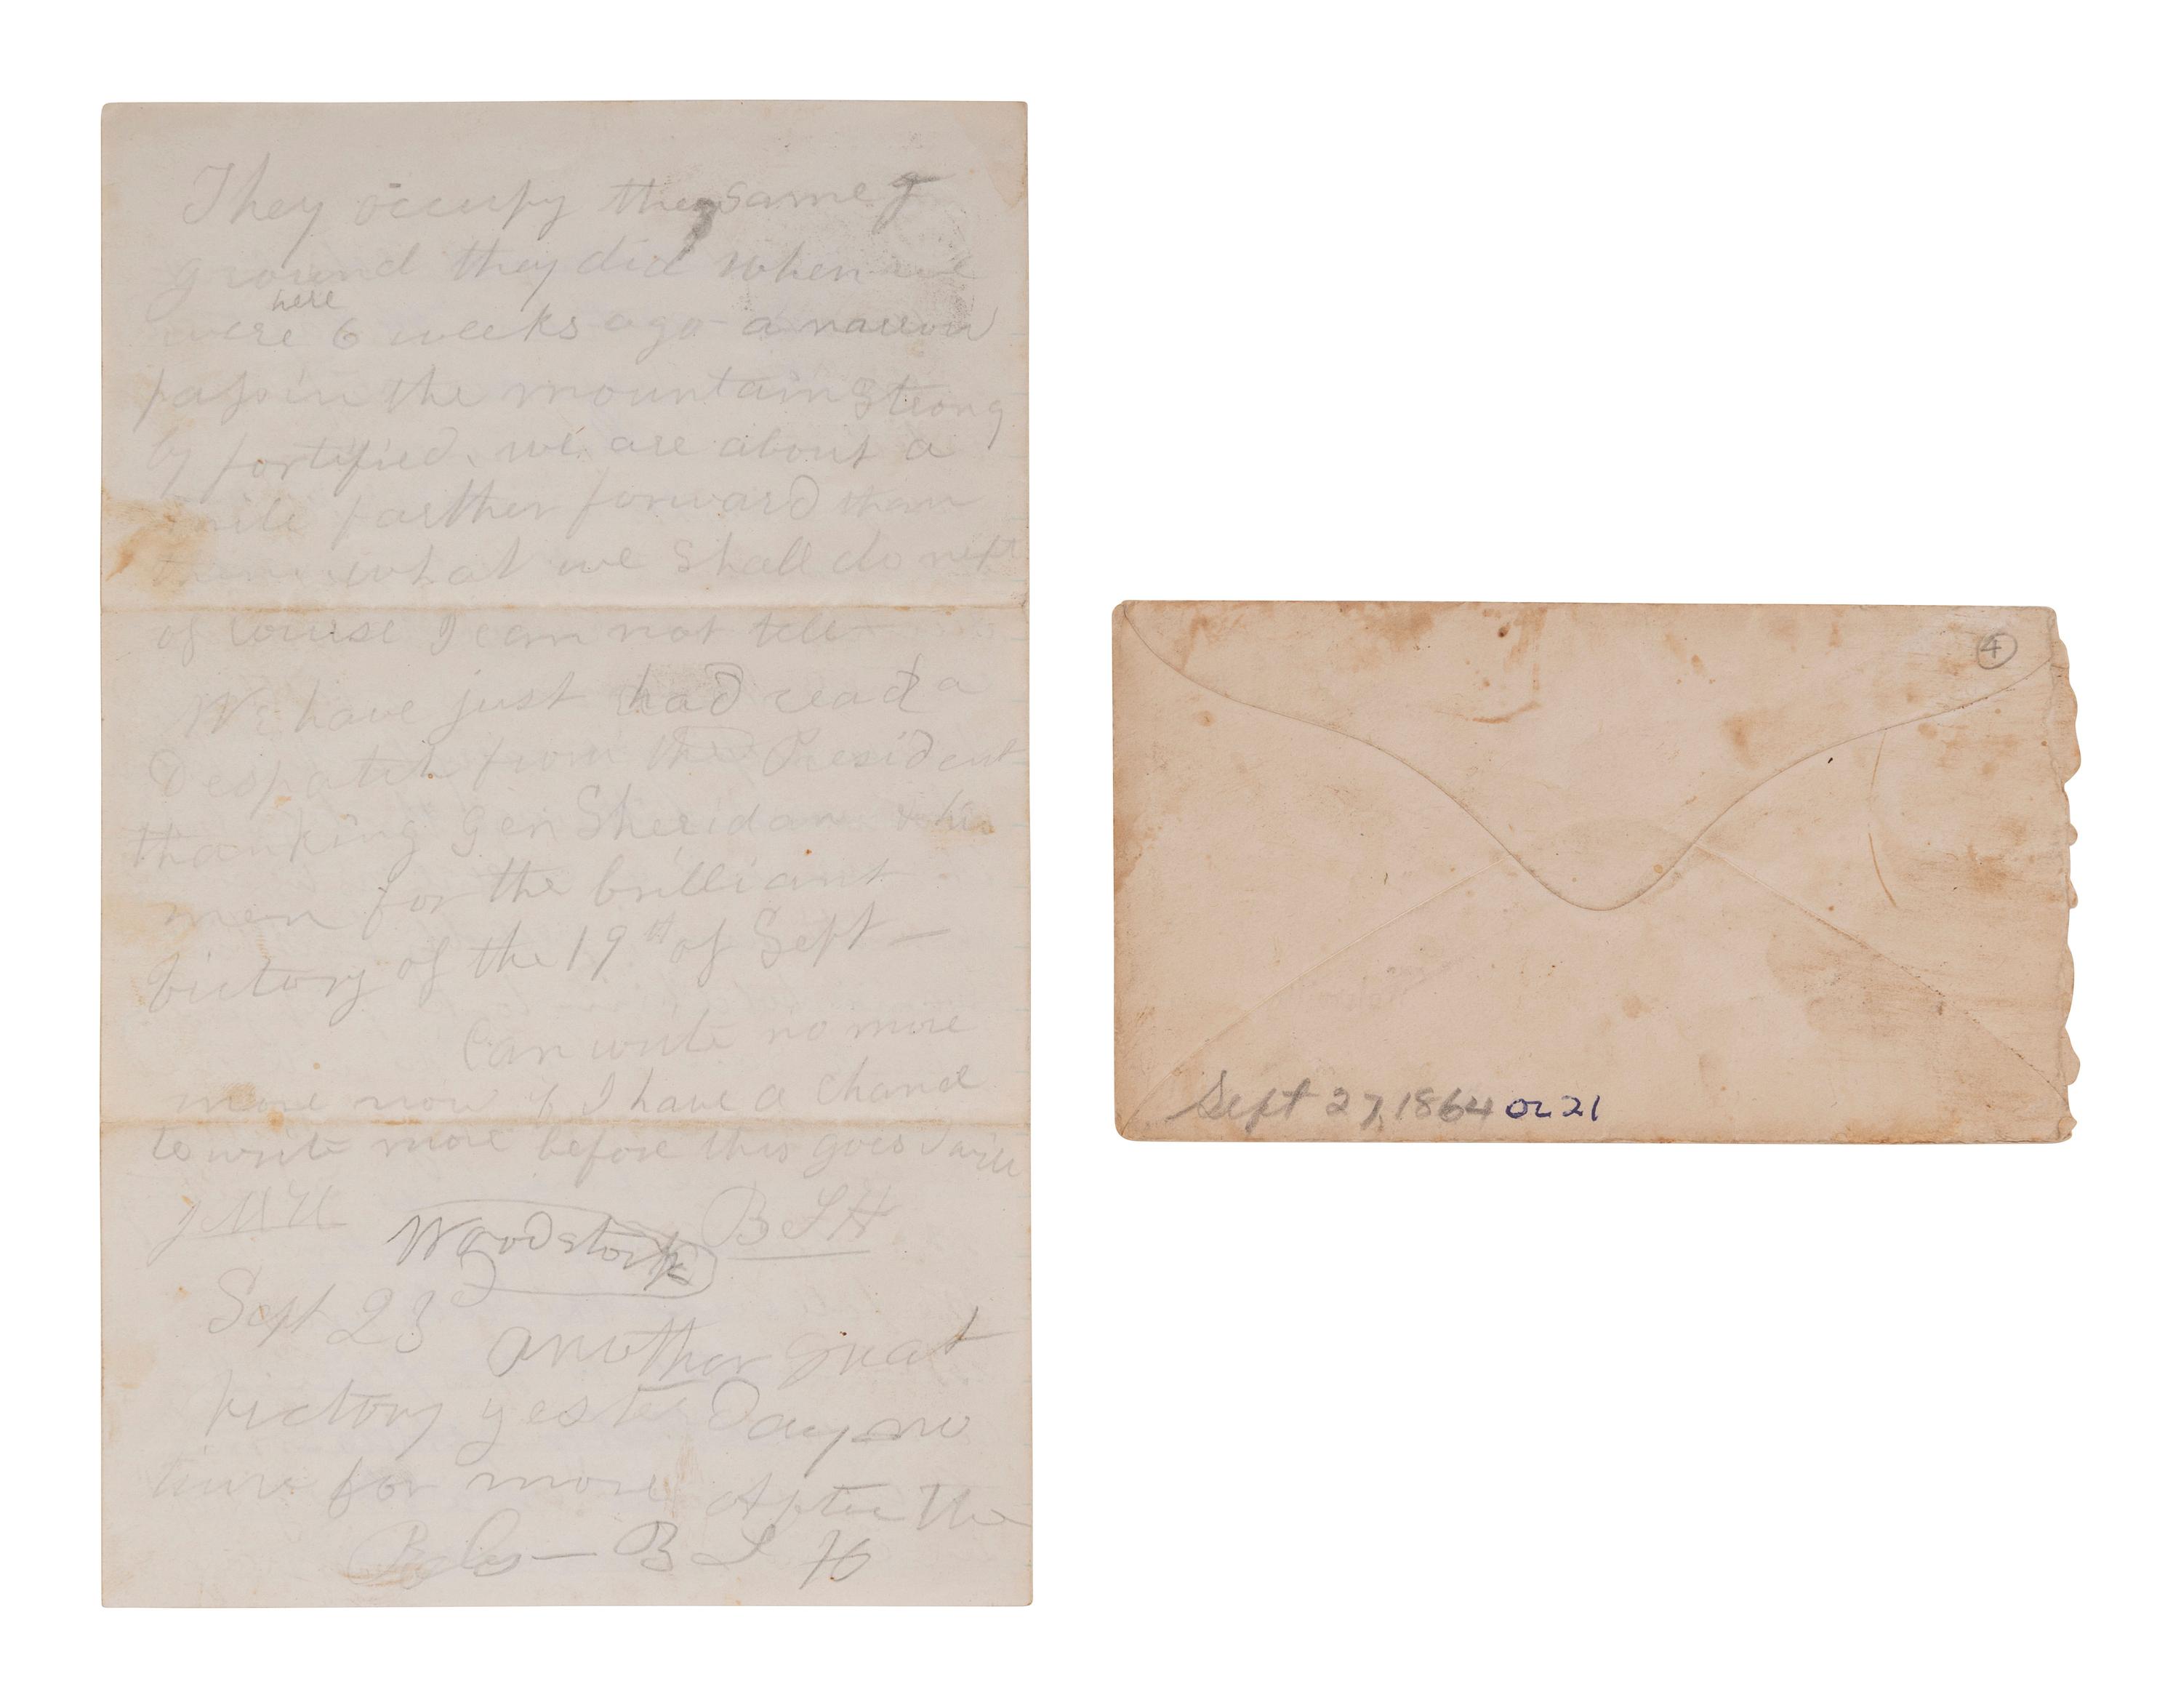 They occupy the same g
ground they did when we
here
were 6 weeks ago - a narrow
pass in the mountain strong
ly fortified. we are about a
mile farther forward than
then what we shall do next
of course I can not tell -
We have just had read a
Despatch from the President
thanking Gen Sheridan & his
men for the brilliant
victory of the 19th of Sept -
Can write no more
more now if I have a chance
to write more before this goes I will
B L H
Woodstock
Sept 23 another great
victory yesterday no
time for more After the
Rebs - B L H
4
Sept 27, 1864 or 21